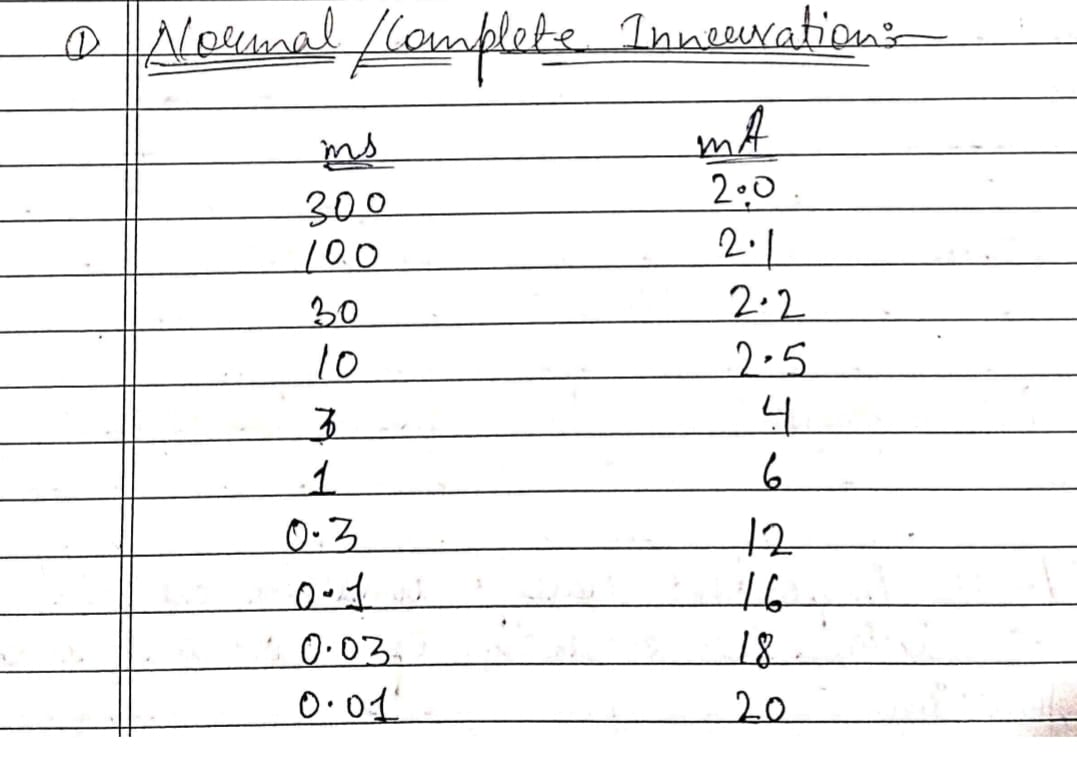 ① Normal / Complete Innervation:-
ms mA
300 2.0
100 2.1
30 2.2
10 2.5
3 4
1 6
0.3 12
0.1 16
0.03 18
0.01 20